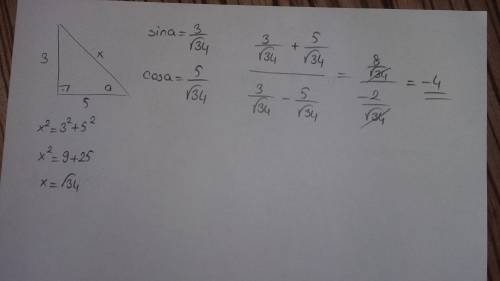 3
x
a
5
x² = 3² + 5²
x² = 9 + 25
x = √34
sina = 3/√34
cosa = 5/√34
(3/√34 + 5/√34)/(3/√34 - 5/√34) = (8/√34)/(-2/√34) = -4